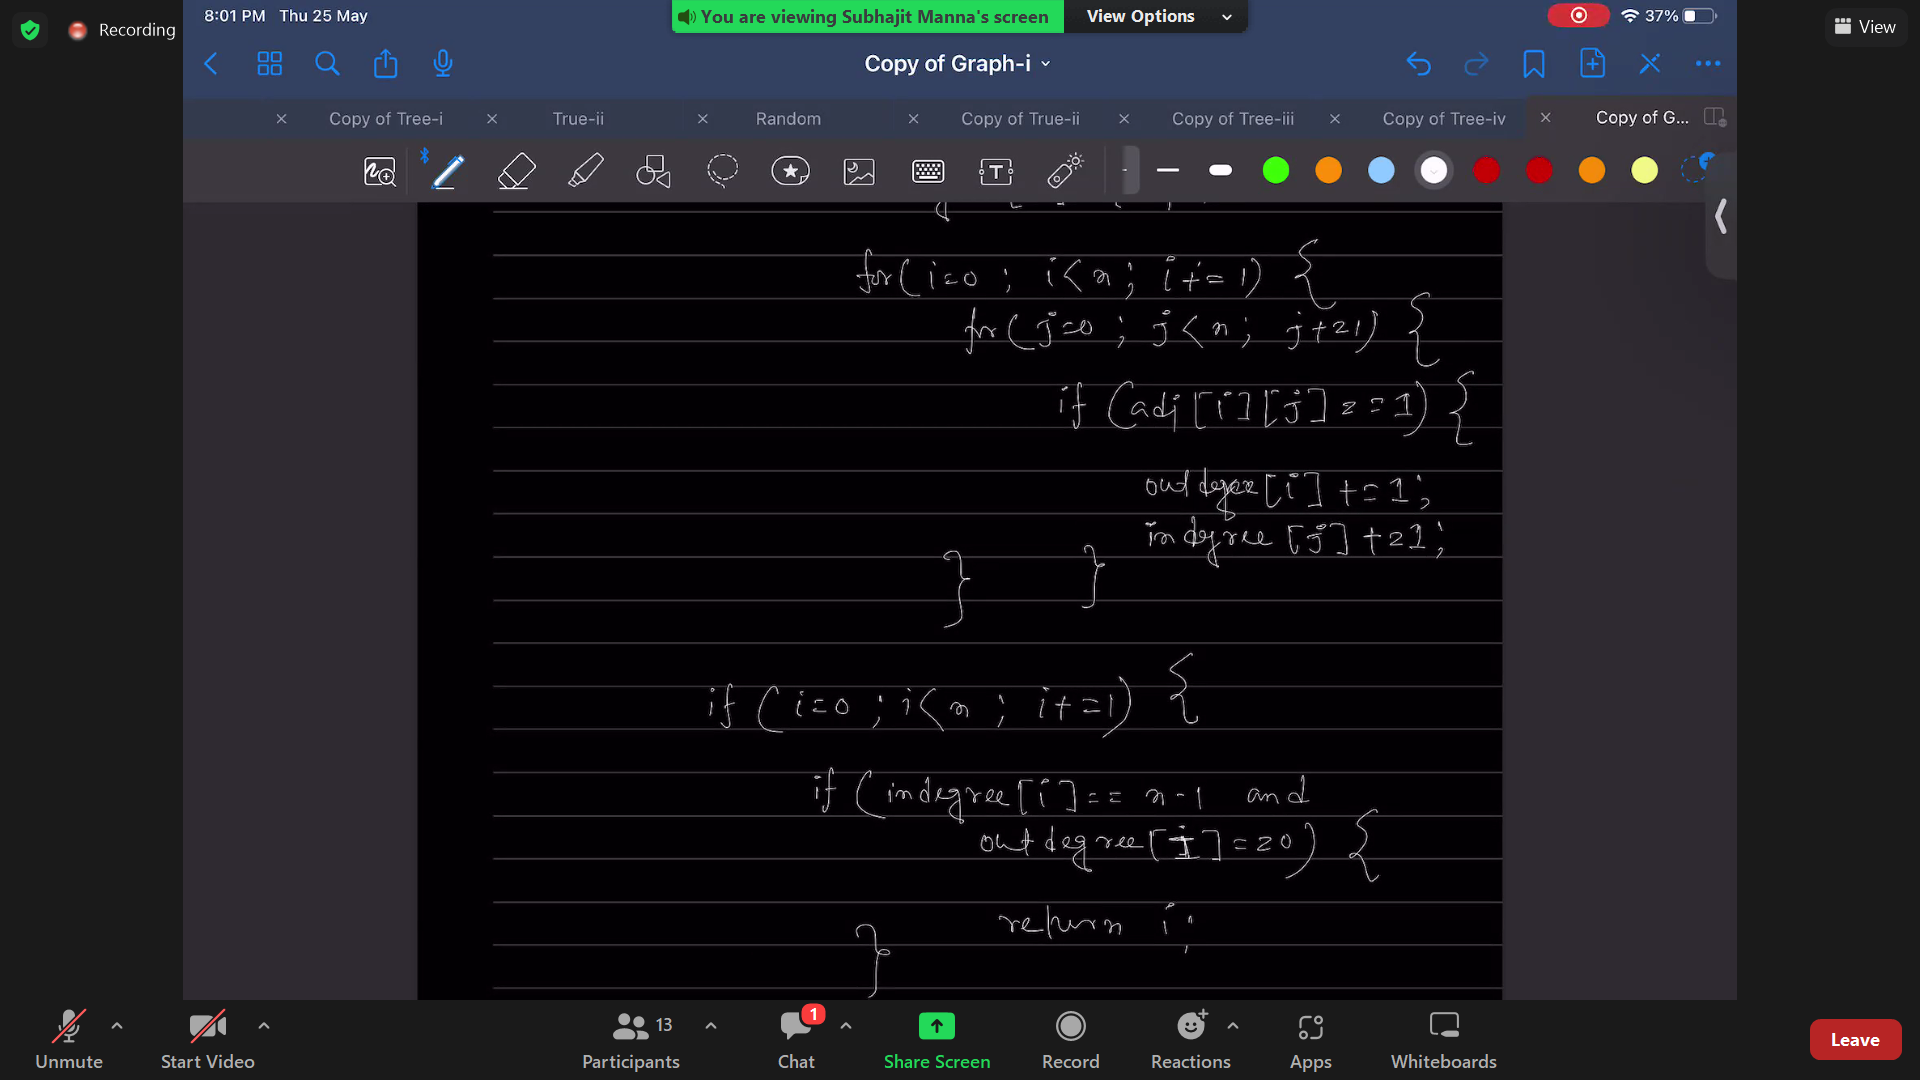 Recording
8:01 PM Thu 25 May
You are viewing Subhajit Manna's screen
View Options
37%
View
Copy of Graph-i
Copy of Tree-i
True-ii
Random
Copy of True-ii
Copy of Tree-iii
Copy of Tree-iv
Copy of G...
T
for(i=0 ; i<n ; i+=1) {
for(j=0 ; j<n ; j+=1) {
if (adj[i][j]==1) {
outdegree[i] +=1;
indegree[j] +=1;
} }
if (i=0 ; i<n ; i+=1) {
if (indegree[i]== n-1 and
outdegree[i]==0) {
return i;
}
Unmute
Start Video
13
Participants
1
Chat
Share Screen
Record
Reactions
Apps
Whiteboards
Leave